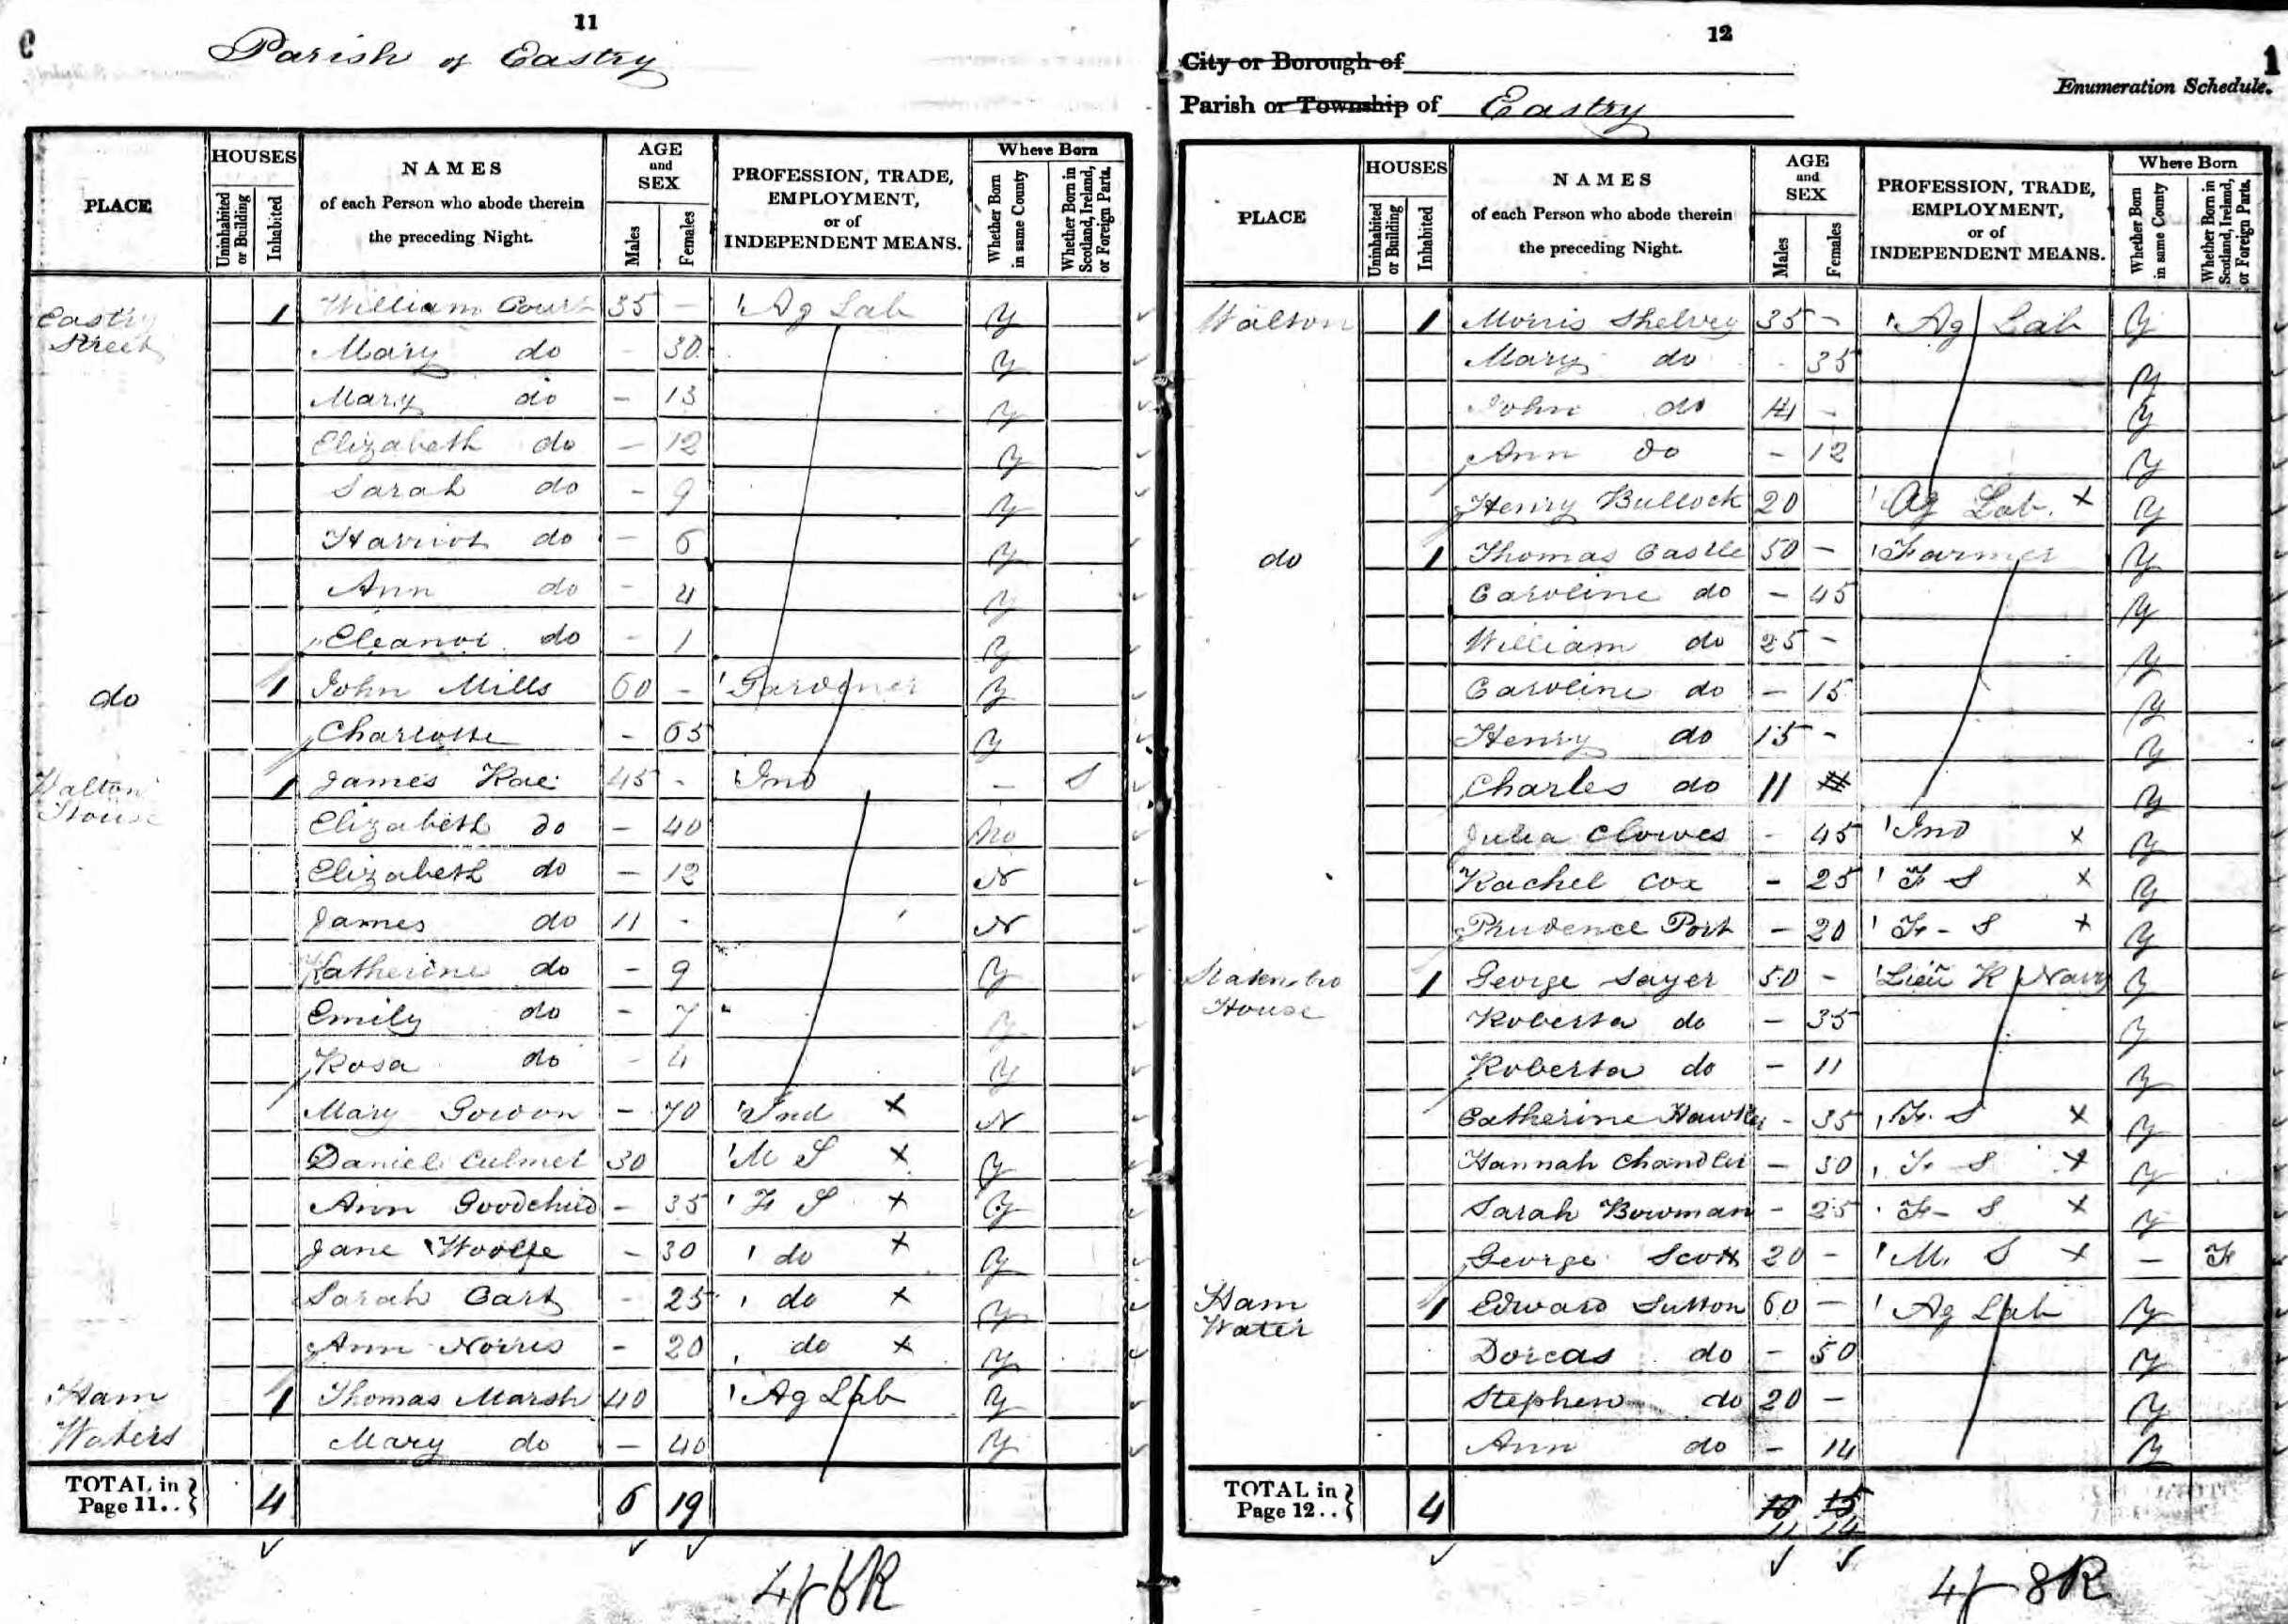 11
Parish of Eastry
PLACE
HOUSES
Uninhabited or Building
Inhabited
NAMES of each Person who abode therein the preceding Night.
AGE and SEX
Males
Females
PROFESSION, TRADE, EMPLOYMENT, or of INDEPENDENT MEANS.
Where Born
Whether Born in same County
Whether Born in Scotland, Ireland, or Foreign Parts.
Eastry Street 1 William Court 35 - Ag Lab y
Mary do - 30 y
Mary do - 13 y
Elizabeth do - 12 y
Sarah do - 9 y
Harriot do - 6 y
Ann do - 4 y
Eleanor do - 1 y
do 1 John Mills 60 - Gardener y
Charlotte - 65 y
Walton House 1 James Rae 45 - Ind - S
Elizabeth do - 40 no
Elizabeth do - 12 N
James do 11 - N
Katherine do - 9 y
Emily do - 7 y
Rosa do - 4 y
Mary Gordon - 70 Ind x N
Daniel Culmer 30 M S x y
Ann Goodchild - 35 F S x y
Jane Woolfe - 30 do x y
Sarah Cart - 25 do x y
Ann Norris - 20 do x y
Ham Waters 1 Thomas Marsh 40 Ag Lab y
Mary do - 40 y
TOTAL in Page 11.. 4 6 19
12
City or Borough of
Enumeration Schedule.
Parish or Township of Eastry
PLACE
HOUSES
Uninhabited or Building
Inhabited
NAMES of each Person who abode therein the preceding Night.
AGE and SEX
Males
Females
PROFESSION, TRADE, EMPLOYMENT, or of INDEPENDENT MEANS.
Where Born
Whether Born in same County
Whether Born in Scotland, Ireland, or Foreign Parts.
Walton 1 Morris Shelvey 35 - Ag Lab y
Mary do - 35 y
John do 14 - y
Ann do - 12 y
Henry Bullock 20 Ag Lab. x y
do 1 Thomas Castle 50 - Farmer y
Caroline do - 45 y
William do 25 - y
Caroline do - 15 y
Henry do 15 - y
Charles do 11 y
Julia Clowes - 45 Ind x y
Rachel Cox - 25 F S x y
Prudence Port - 20 F - S x y
House 1 George Sayer 50 - Lieu R Navy y
Roberta do - 35 y
Roberta do - 11 y
Catherine - 35 F. S x y
Hannah Chandler - 30 F S x y
Sarah Bowman - 25 F - S x y
George Scott 20 - M. S x - F
Ham Water 1 Edward Sutton 60 - Ag Lab y
Dorcas do - 50 y
Stephen do 20 - y
Ann do - 14 y
TOTAL in Page 12.. 4 10 15
11 14